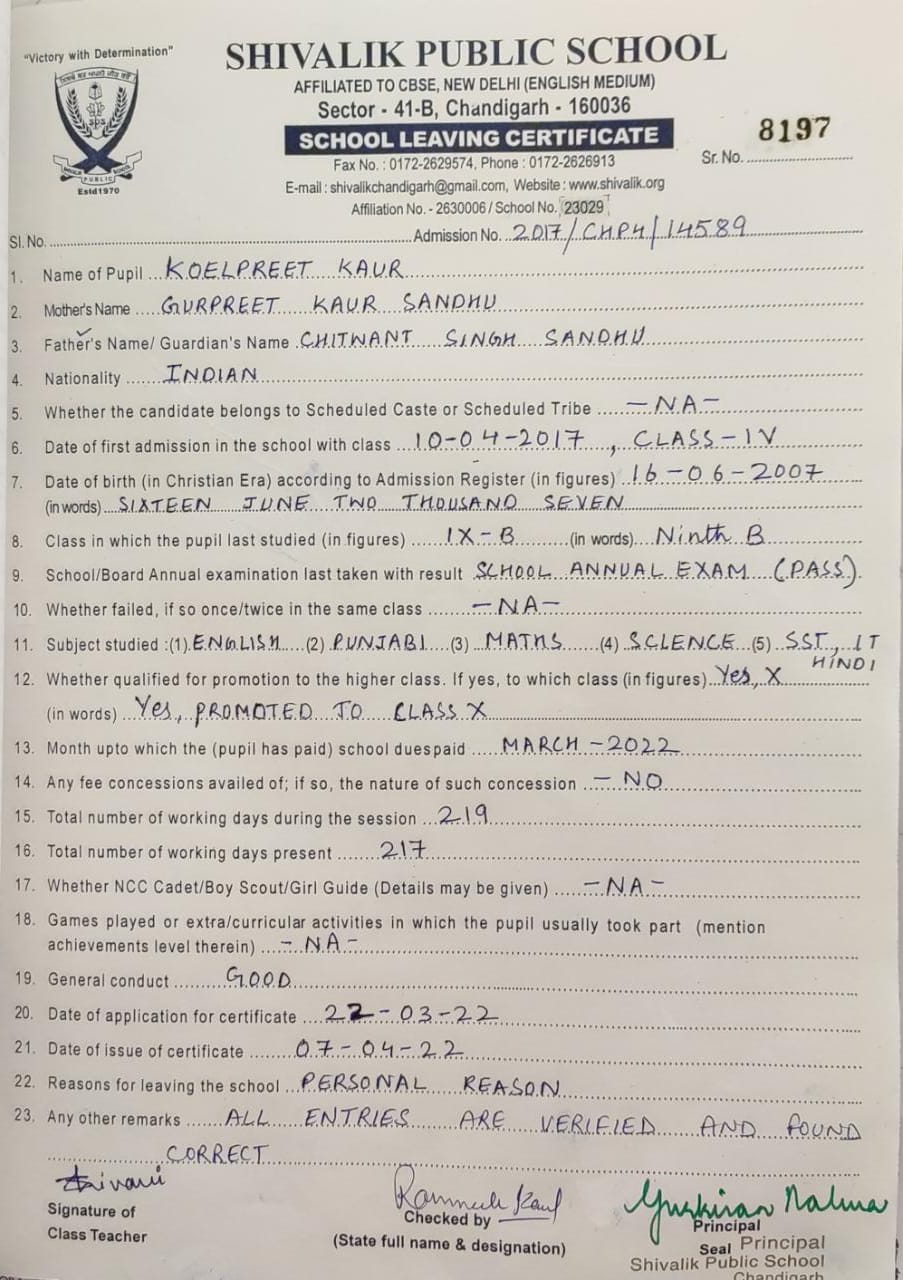 "Victory with Determination"
SPS
PUBLIC
Estd1970
SHIVALIK PUBLIC SCHOOL
AFFILIATED TO CBSE, NEW DELHI (ENGLISH MEDIUM)
Sector - 41-B, Chandigarh - 160036
SCHOOL LEAVING CERTIFICATE
Sr. No. 8197
Fax No. : 0172-2629574, Phone : 0172-2626913
E-mail : shivalikchandigarh@gmail.com, Website : www.shivalik.org
Affiliation No. - 2630006 / School No. 23029
Sl. No. Admission No. 2017/CHP4/14589
1. Name of Pupil KOELPREET KAUR
2. Mother's Name GURPREET KAUR SANDHU
3. Father's Name/ Guardian's Name CHITWANT SINGH SANDHU
4. Nationality INDIAN
5. Whether the candidate belongs to Scheduled Caste or Scheduled Tribe -NA-
6. Date of first admission in the school with class 10-04-2017, CLASS-IV
7. Date of birth (in Christian Era) according to Admission Register (in figures) 16-06-2007
(in words) SIXTEEN JUNE TWO THOUSAND SEVEN
8. Class in which the pupil last studied (in figures) IX-B (in words) Ninth B
9. School/Board Annual examination last taken with result SCHOOL ANNUAL EXAM (PASS)
10. Whether failed, if so once/twice in the same class -NA-
11. Subject studied :(1) ENGLISH (2) PUNJABI (3) MATHS (4) SCIENCE (5) SST, IT
HINDI
12. Whether qualified for promotion to the higher class. If yes, to which class (in figures) Yes, X
(in words) Yes, PROMOTED TO CLASS X
13. Month upto which the (pupil has paid) school duespaid MARCH-2022
14. Any fee concessions availed of; if so, the nature of such concession - NO
15. Total number of working days during the session 219
16. Total number of working days present 217
17. Whether NCC Cadet/Boy Scout/Girl Guide (Details may be given) -NA-
18. Games played or extra/curricular activities in which the pupil usually took part (mention
achievements level therein) -NA-
19. General conduct GOOD
20. Date of application for certificate 22-03-22
21. Date of issue of certificate 07-04-22
22. Reasons for leaving the school PERSONAL REASON
23. Any other remarks ALL ENTRIES ARE VERIFIED AND FOUND
CORRECT
Signature of
Class Teacher
Checked by
(State full name & designation)
Principal
Seal Principal
Shivalik Public School
Chandigarh